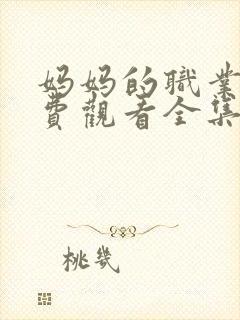 妈妈的職業
費觀看全集
桃幾